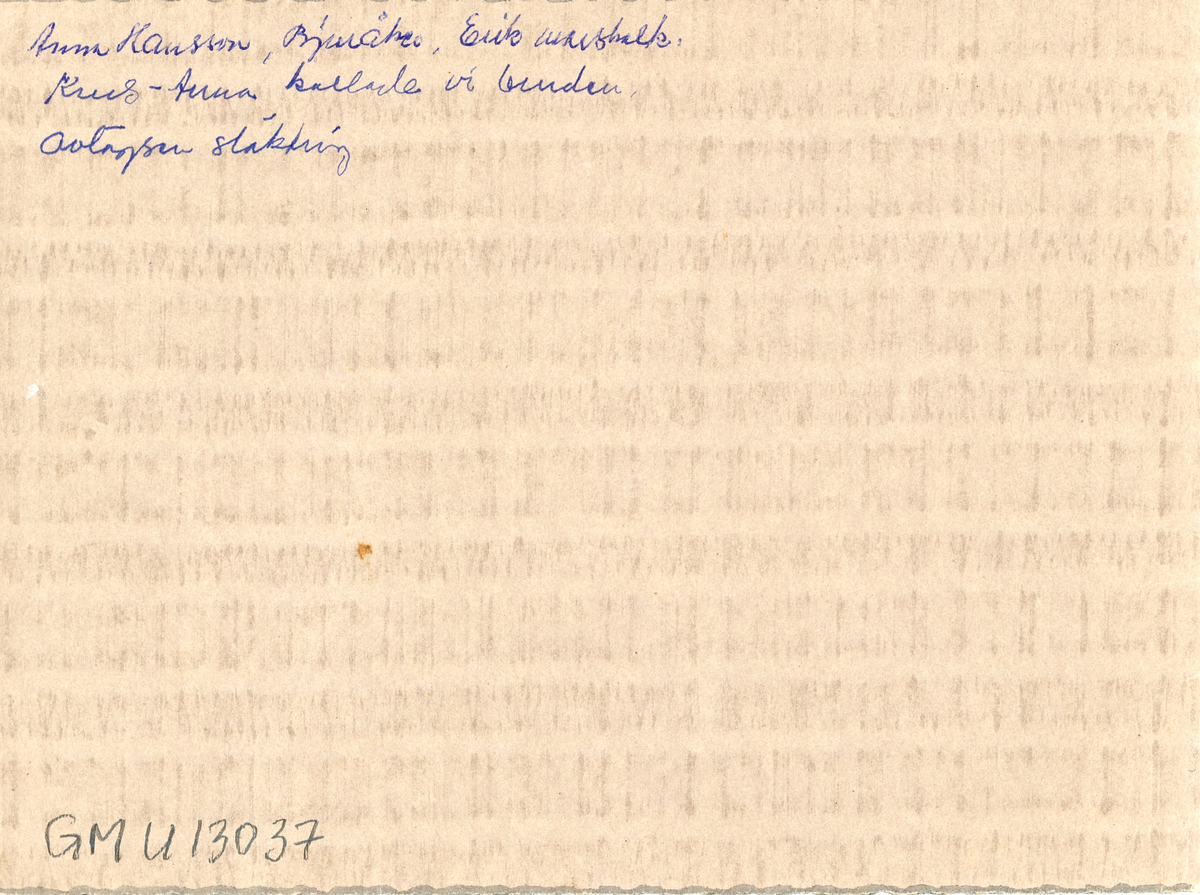 Anna Hansson, Bjuråker, Erik marskalk.
Krus-Anna kallade vi bruden.
Avlägsen släkting
GMU 13037